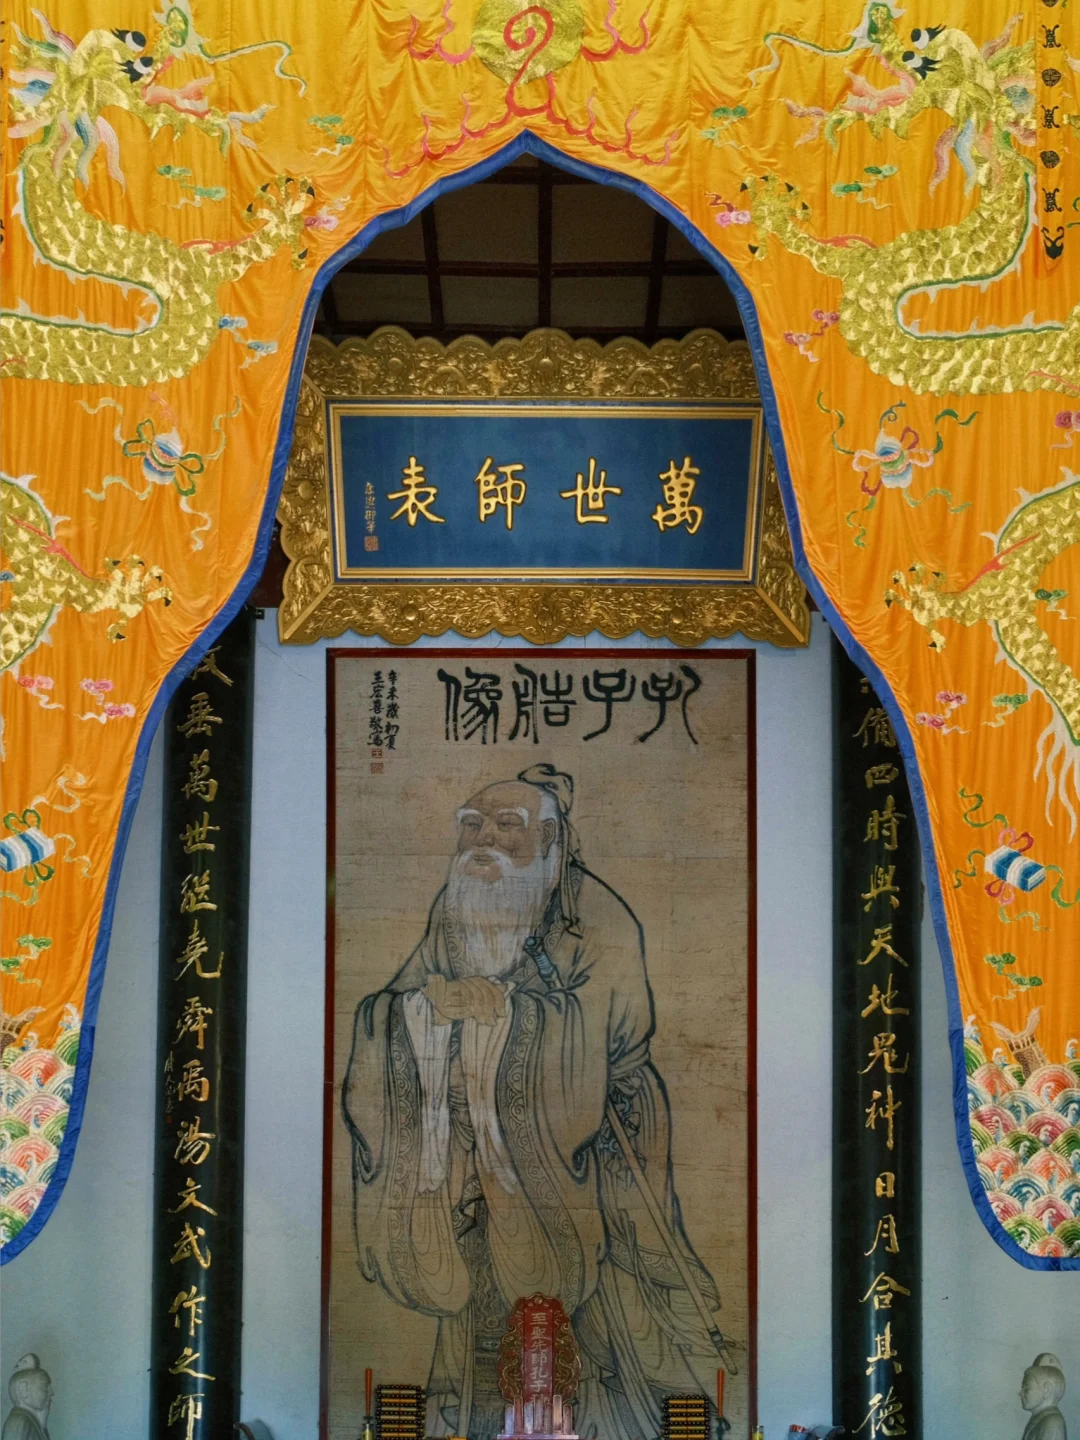 萬世師表
康熙御筆
孔子艁像
辛未歲初夏
王宏喜敬寫
備四時與天地鬼神日月合其德
教垂萬世繼堯舜禹湯文武作之師
至聖先師孔子